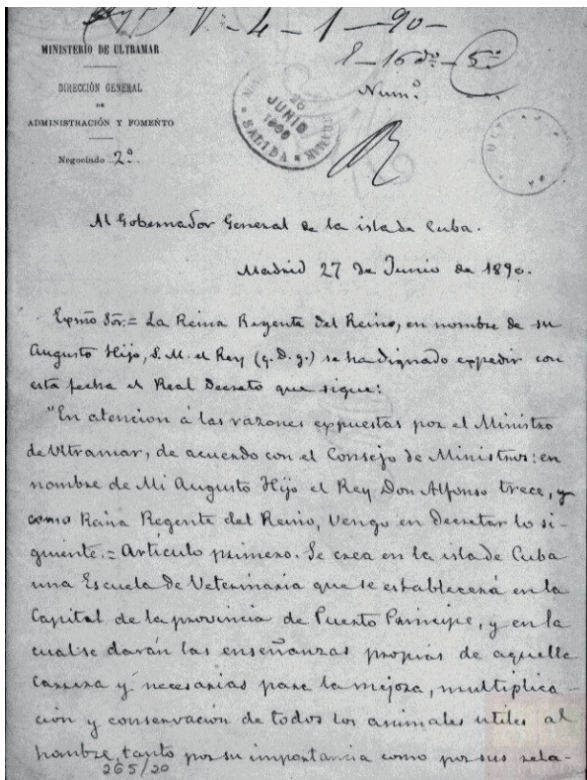 V.-4-1-90-
E-16 dº-5º
MINISTERIO DE ULTRAMAR
DIRECCIÓN GENERAL
DE
ADMINISTRACIÓN Y FOMENTO
Negociado 2º
Numº
26
JUNIO
SALIDA
Al Gobernador General de la isla de Cuba.
Madrid 27 de Junio de 1890.
Exmo Sor.= La Reina Regente del Reino, en nombre de su
Augusto Hijo, S. M. el Rey (q. D. g.) se ha dignado expedir con
esta fecha el Real Decreto que sigue:
"En atencion á las razones expuestas por el Ministro
de Ultramar, de acuerdo con el Consejo de Ministros: en
nombre de Mi Augusto Hijo el Rey Don Alfonso trece, y
como Reina Regente del Reino, Vengo en Decretar lo si-
guiente.= Artículo primero. Se crea en la isla de Cuba
una Escuela de Veterinaria que se establecerá en la
Capital de la provincia de Puerto Principe, y en la
cual se darán las enseñanzas propias de aquella
carrera y necesarias para la mejora, multiplica-
ción y conservación de todos los animales utiles al
hombre, tanto por su importancia como por sus rela-
265/20